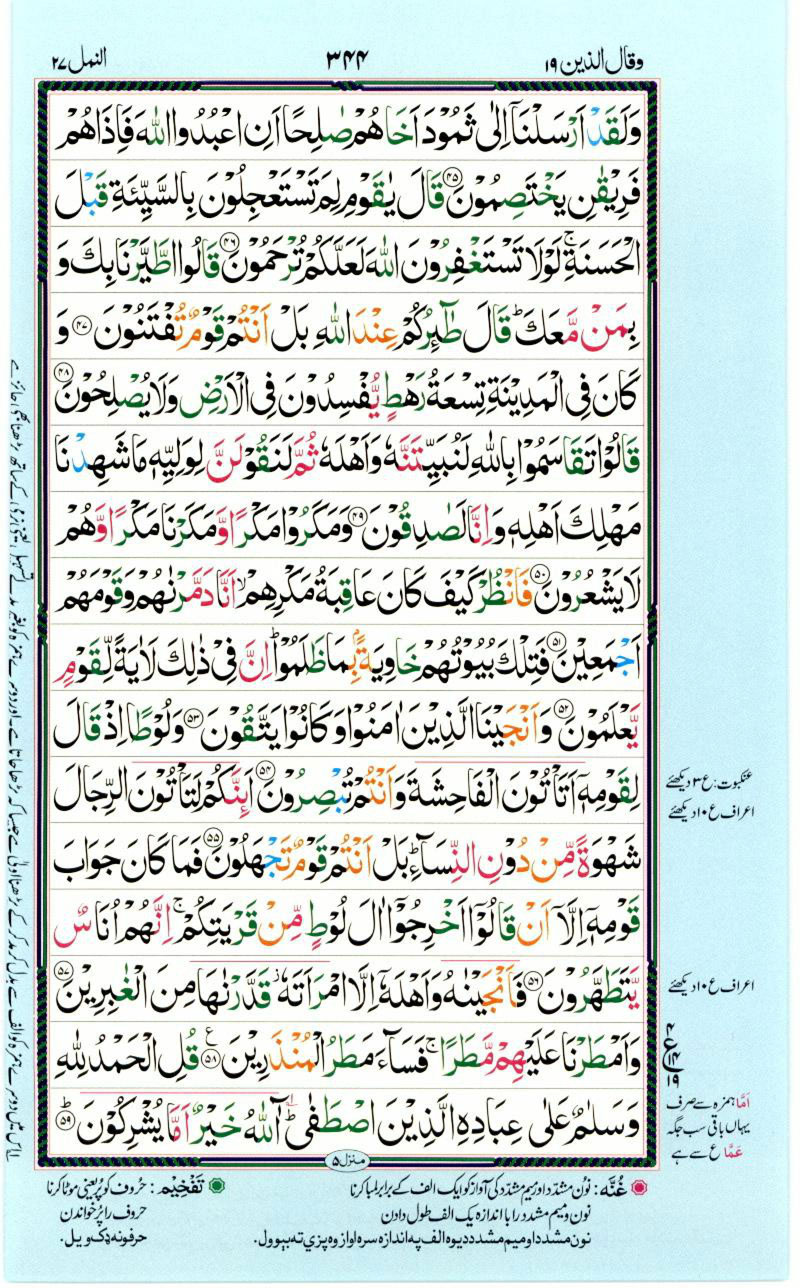 وقال الذين ١٩
٣٤٤
النمل ٢٧
وَلَقَدْ اَرْسَلْنَاۤ اِلٰى ثَمُوْدَ اَخَاهُمْ صٰلِحًا اَنِ اعْبُدُوا اللّٰهَ فَاِذَا هُمْ
فَرِيْقٰنِ يَخْتَصِمُوْنَ ﴿۴۵﴾ قَالَ يٰقَوْمِ لِمَ تَسْتَعْجِلُوْنَ بِالسَّيِّئَةِ قَبْلَ
الْحَسَنَةِ ۚ لَوْلَا تَسْتَغْفِرُوْنَ اللّٰهَ لَعَلَّكُمْ تُرْحَمُوْنَ ﴿۴۶﴾ قَالُوا اطَّيَّرْنَا بِكَ وَ
بِمَنْ مَّعَكَ ؕ قَالَ طٰٓئِرُكُمْ عِنْدَ اللّٰهِ بَلْ اَنْتُمْ قَوْمٌ تُفْتَنُوْنَ ﴿۴۷﴾ وَ
كَانَ فِى الْمَدِيْنَةِ تِسْعَةُ رَهْطٍ يُّفْسِدُوْنَ فِى الْاَرْضِ وَلَا يُصْلِحُوْنَ ﴿۴۸﴾
قَالُوْا تَقَاسَمُوْا بِاللّٰهِ لَنُبَيِّتَنَّهٗ وَاَهْلَهٗ ثُمَّ لَنَقُوْلَنَّ لِوَلِيِّهٖ مَا شَهِدْنَا
مَهْلِكَ اَهْلِهٖ وَاِنَّا لَصٰدِقُوْنَ ﴿۴۹﴾ وَمَكَرُوْا مَكْرًا وَّمَكَرْنَا مَكْرًا وَّهُمْ
لَا يَشْعُرُوْنَ ﴿۵۰﴾ فَانْظُرْ كَيْفَ كَانَ عَاقِبَةُ مَكْرِهِمْ ۙ اَنَّا دَمَّرْنٰهُمْ وَقَوْمَهُمْ
اَجْمَعِيْنَ ﴿۵۱﴾ فَتِلْكَ بُيُوْتُهُمْ خَاوِيَةًۢ بِمَا ظَلَمُوْا ؕ اِنَّ فِىْ ذٰلِكَ لَاٰيَةً لِّقَوْمٍ
يَّعْلَمُوْنَ ﴿۵۲﴾ وَاَنْجَيْنَا الَّذِيْنَ اٰمَنُوْا وَكَانُوْا يَتَّقُوْنَ ﴿۵۳﴾ وَلُوْطًا اِذْ قَالَ
لِقَوْمِهٖۤ اَتَاْتُوْنَ الْفَاحِشَةَ وَاَنْتُمْ تُبْصِرُوْنَ ﴿۵۴﴾ اَئِنَّكُمْ لَتَاْتُوْنَ الرِّجَالَ
شَهْوَةً مِّنْ دُوْنِ النِّسَآءِ ؕ بَلْ اَنْتُمْ قَوْمٌ تَجْهَلُوْنَ ﴿۵۵﴾ فَمَا كَانَ جَوَابَ
قَوْمِهٖۤ اِلَّاۤ اَنْ قَالُوْۤا اَخْرِجُوْۤا اٰلَ لُوْطٍ مِّنْ قَرْيَتِكُمْ ۚ اِنَّهُمْ اُنَاسٌ
يَّتَطَهَّرُوْنَ ﴿۵۶﴾ فَاَنْجَيْنٰهُ وَاَهْلَهٗۤ اِلَّا امْرَاَتَهٗ ؗ قَدَّرْنٰهَا مِنَ الْغٰبِرِيْنَ ﴿۵۷﴾
وَاَمْطَرْنَا عَلَيْهِمْ مَّطَرًا ۚ فَسَآءَ مَطَرُ الْمُنْذَرِيْنَ ﴿۵۸﴾ قُلِ الْحَمْدُ لِلّٰهِ
وَسَلٰمٌ عَلٰى عِبَادِهِ الَّذِيْنَ اصْطَفٰى ؕ آٰللّٰهُ خَيْرٌ اَمَّا يُشْرِكُوْنَ ﴿۵۹﴾
منزل ۵
عنکبوت: ع ۳ دیکھئے
اعراف ع ۱۰ دیکھئے
اعراف ع ۱۰ دیکھئے
۴
ع
۱۴
۱۹
اَمَّا ہمزہ سے صرف
یہاں باقی سب جگہ
عَمَّا ع سے ہے
غُنَّہ: نون مشدد اور میم مشدد کی آواز کو ایک الف کے برابر لمبا کرنا
نون و میم مشدد را با اندازہ یک الف طول دادن
نون مشدد او میم مشدد دیوہ الف په اندازه سره اواز وه پزي ته بیوول.
تَفْخِیْم: حروف کو پُر یعنی موٹا کرنا
حروف را پُر خواندن
حرفونه ډک ویل.